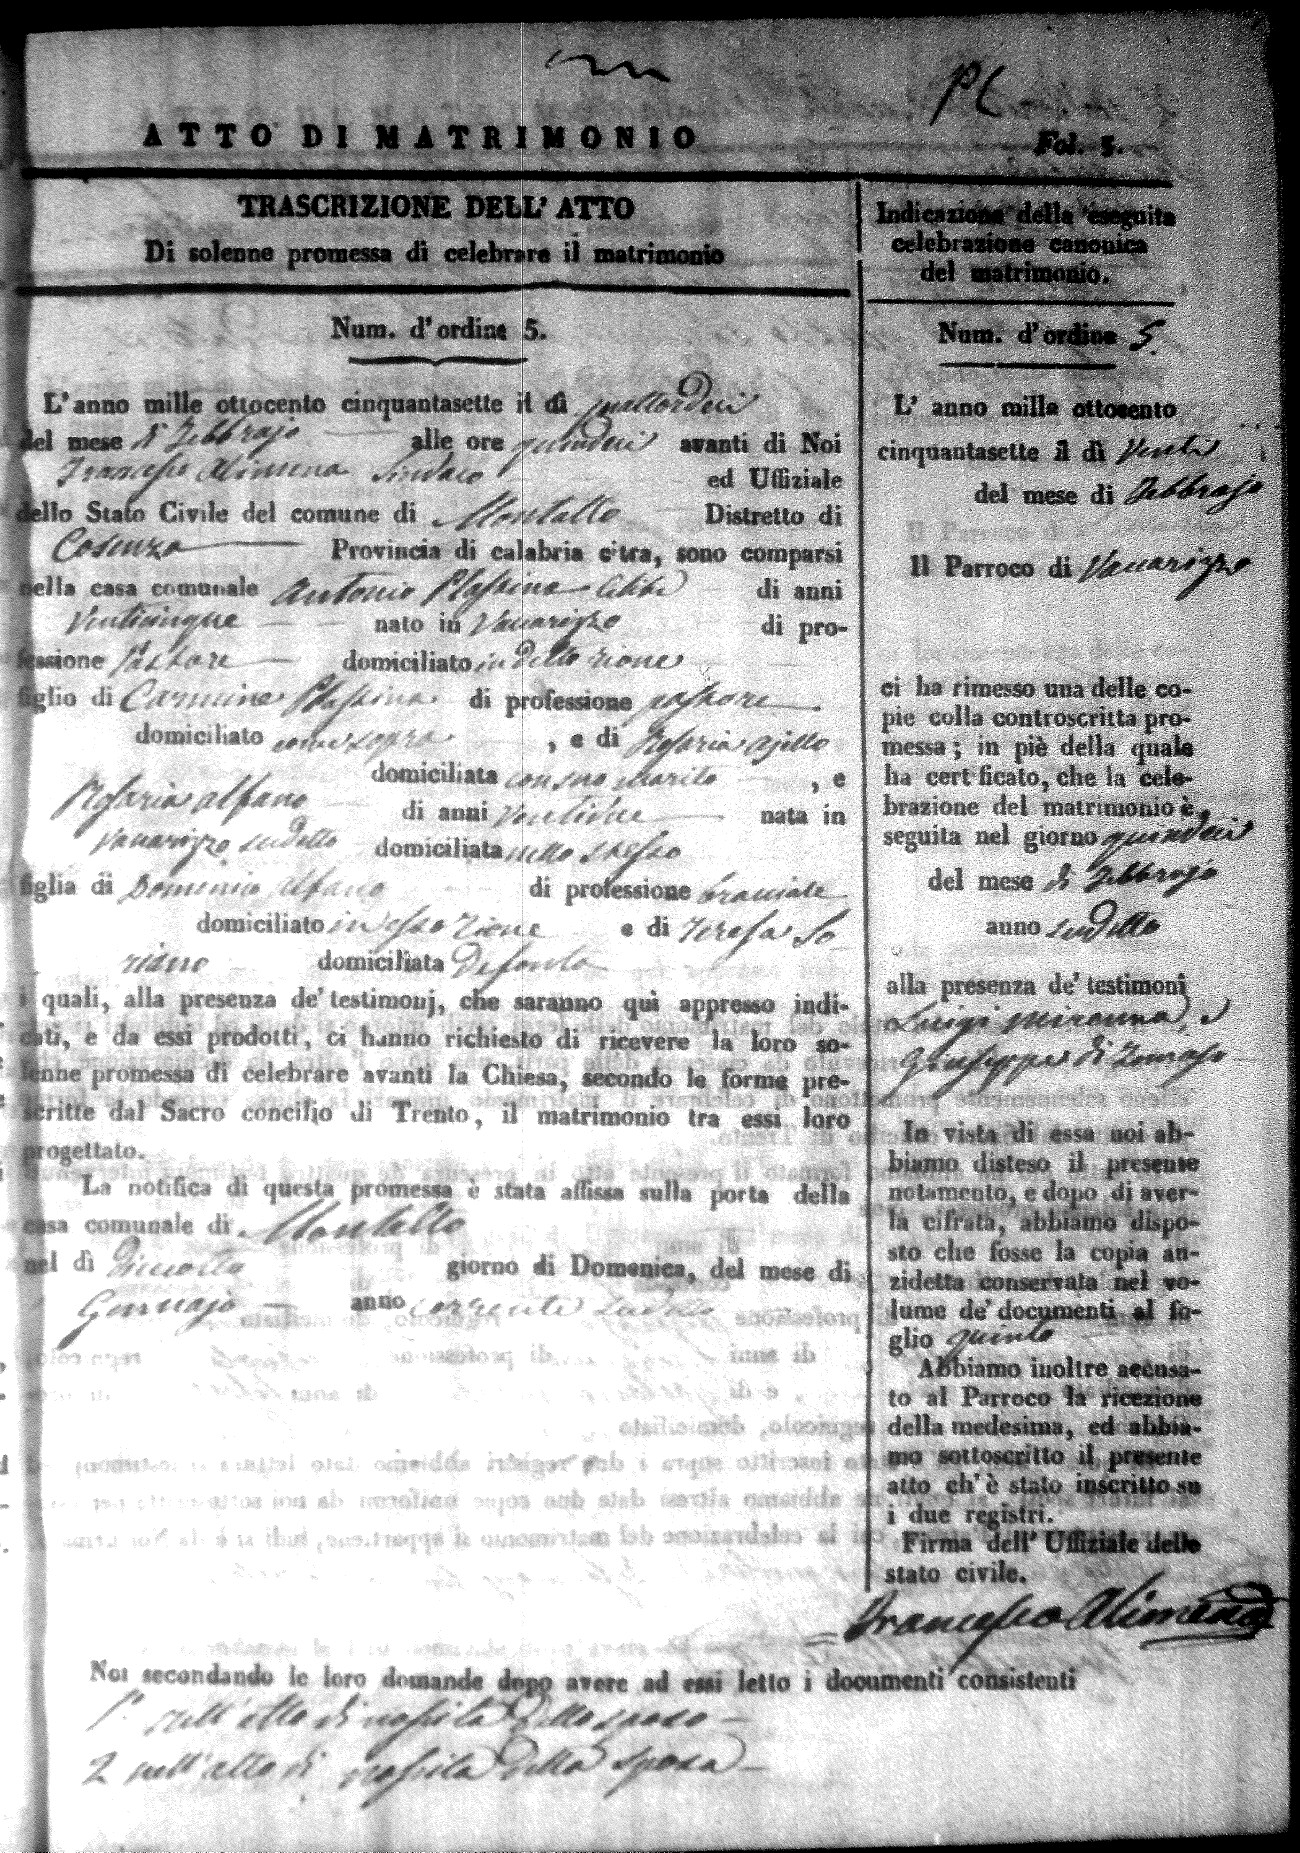 ATTO DI MATRIMONIO
Fol. 5.
TRASCRIZIONE DELL' ATTO
Di solenne promessa di celebrare il matrimonio
Num. d'ordine 5.
L'anno mille ottocento cinquantasette il dì quattordeci
del mese di Febbrajo alle ore quindeci avanti di Noi
Francesco Alimena Sindaco ed Uffiziale
dello Stato Civile del comune di Montalto Distretto di
Cosenza Provincia di calabria citra, sono comparsi
nella casa comunale Antonio di anni
Venticinque nato in Vaccarizzo di pro-
fessione Pastore domiciliato in detto rione
figlio di Carmine di professione pastore
domiciliato come sopra , e di Rosaria Ajello
domiciliata con suo marito , e
Rosaria Alfano di anni Ventidue nata in
Vaccarizzo sudetto domiciliata nello stesso
figlia di Domenico Alfano di professione bracciale
domiciliato in esso rione e di Teresa So
riano domiciliata Defonta
i quali, alla presenza de' testimonj, che saranno qui appresso indi-
cati, e da essi prodotti, ci hanno richiesto di ricevere la loro so-
lenne promessa di celebrare avanti la Chiesa, secondo le forme pre-
scritte dal Sacro concilio di Trento, il matrimonio tra essi loro
progettato.
La notifica di questa promessa è stata affissa sulla porta della
casa comunale di Montalto
nel dì Diciotto giorno di Domenica, del mese di
Gennajo anno corrente sudetto
Noi secondando le loro domande dopo avere ad essi letto i documenti consistenti
1° nell'atto di nascita dello sposo
2 nell'atto di nascita della sposa
Indicazione della eseguita
celebrazione canonica
del matrimonio.
Num. d'ordine 5.
L' anno mille ottocento
cinquantasette il dì Venti
del mese di Febbrajo
Il Parroco di Vaccarizzo
ci ha rimesso una delle co-
pie colla controscritta pro-
messa; in piè della quale
ha certificato, che la cele-
brazione del matrimonio è
seguita nel giorno quindeci
del mese di Febbrajo
anno sudetto
alla presenza de' testimoni
Luigi e
Giuseppe di Tomaso
In vista di essa noi ab-
biamo disteso il presente
notamento, e dopo di aver-
la cifrata, abbiamo dispo-
sto che fosse la copia an-
zidetta conservata nel vo-
lume de' documenti al fo-
glio quinto
Abbiamo inoltre accusa-
to al Parroco la ricezione
della medesima, ed abbia-
mo sottoscritto il presente
atto ch'è stato inscritto su
i due registri.
Firma dell' Uffiziale dello
stato civile.
Francesco Alimena